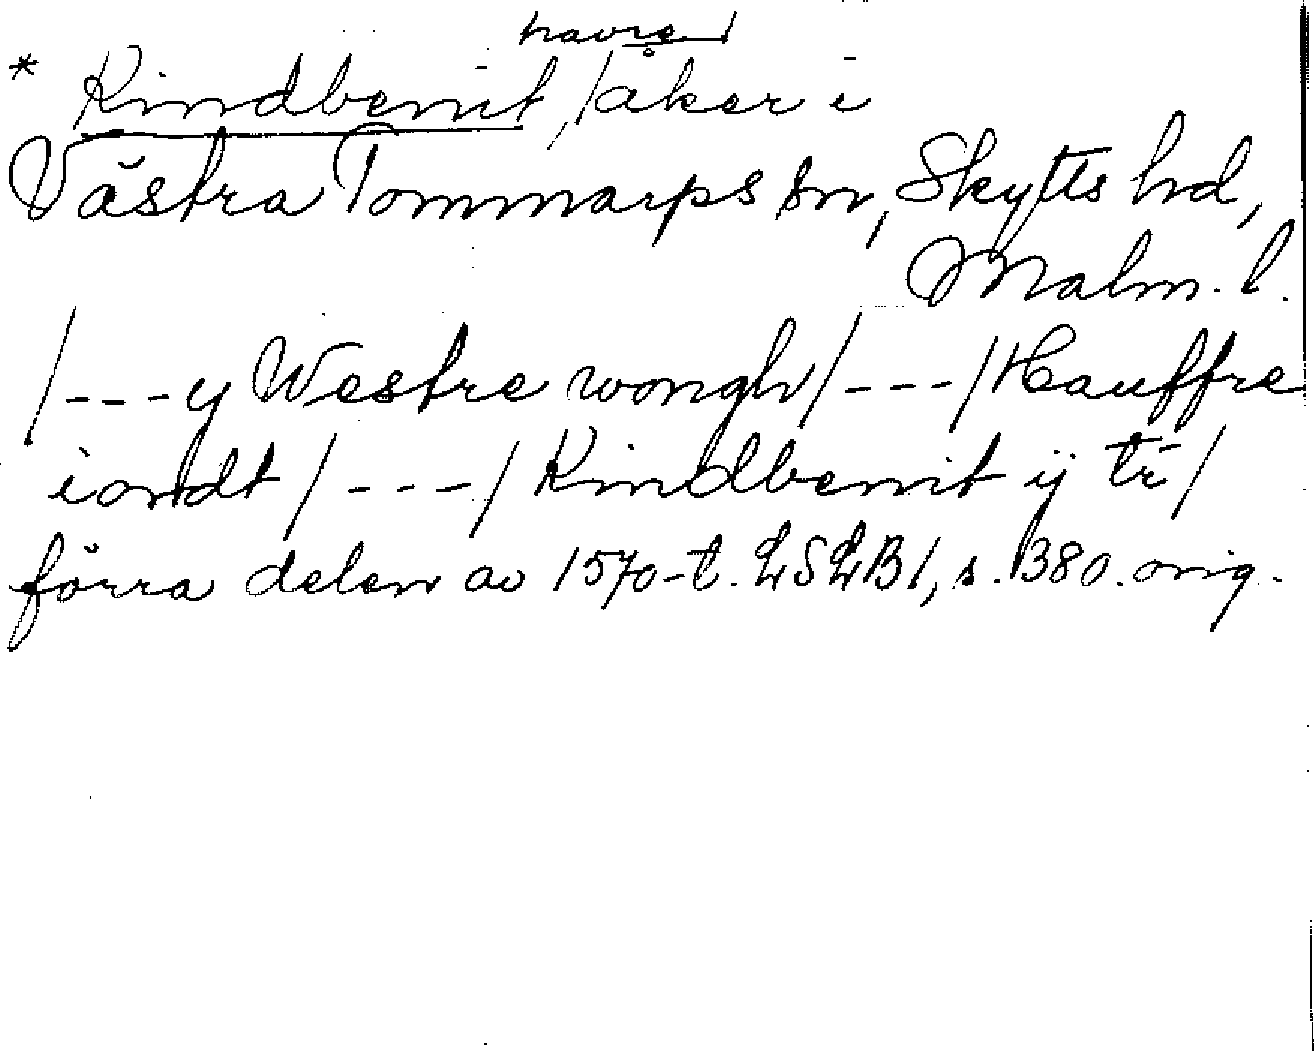 havre/
* Kindbenit, /åker i
Västra Tommarps sn, Skytts hd,
Malm. l.
/---y Westre wongh/---/Hauffre
iordt/---/Kindbenit ÿ tr/
förra delen av 1570-t. LSLB1, s. 1380. orig.